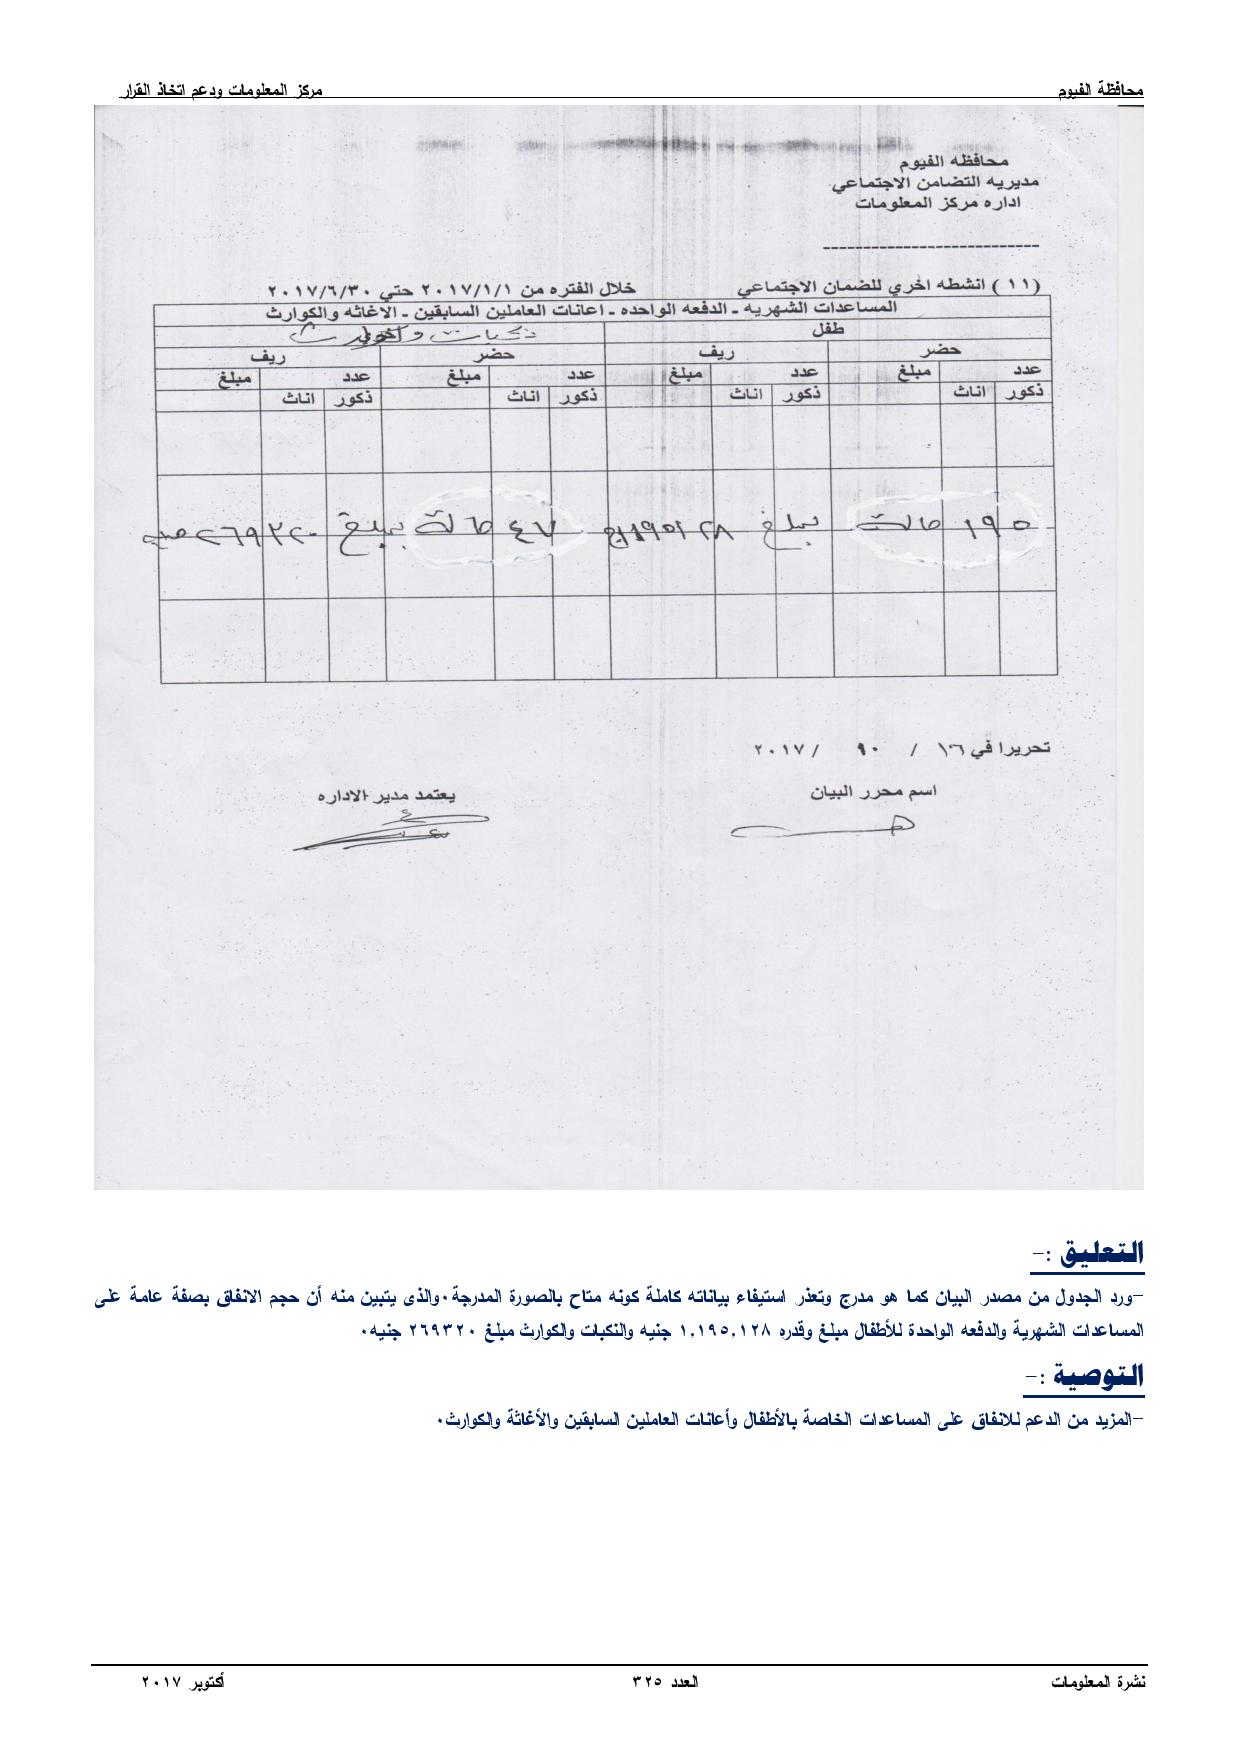 محافظة الفيوم مركز المعلومات ودعم اتخاذ القرار
محافظه الفيوم
مديريه التضامن الاجتماعي
اداره مركز المعلومات
---------------------------
(١١) انشطه اخري للضمان الاجتماعي خلال الفتره من ٢٠١٧/١/١ حتي ٢٠١٧/٦/٣٠
المساعدات الشهريه ـ الدفعه الواحده ـ اعانات العاملين السابقين ـ الاغاثه والكوارث
طفل
حضر ريف حضر ريف
عدد مبلغ عدد مبلغ عدد مبلغ عدد مبلغ
ذكور اناث ذكور اناث ذكور اناث ذكور اناث
١٩٥ حالت بمبلغ ٤٧ حالة بمبلغ ٢٦٩٣٢٠
تحريرا في ١٦ / / ٢٠١٧
اسم محرر البيان يعتمد مدير الاداره
التعليق :-
-ورد الجدول من مصدر البيان كما هو مدرج وتعذر استيفاء بياناته كاملة كونه متاح بالصورة المدرجة٠والذى يتبين منه أن حجم الانفاق بصفة عامة على
المساعدات الشهرية والدفعه الواحدة للأطفال مبلغ وقدره ١,١٩٥,١٢٨ جنيه والنكبات والكوارث مبلغ ٢٦٩٣٢٠ جنيه٠
التوصية :-
-المزيد من الدعم للانفاق على المساعدات الخاصة بالأطفال وأعانات العاملين السابقين والأغاثة والكوارث٠
نشرة المعلومات العدد ٣٢٥ أكتوبر ٢٠١٧